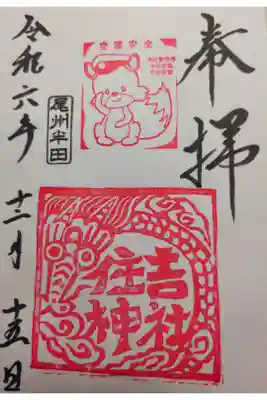 奉拝
交通安全
尾州半田
住吉神社
令和六年
十二月
十五日